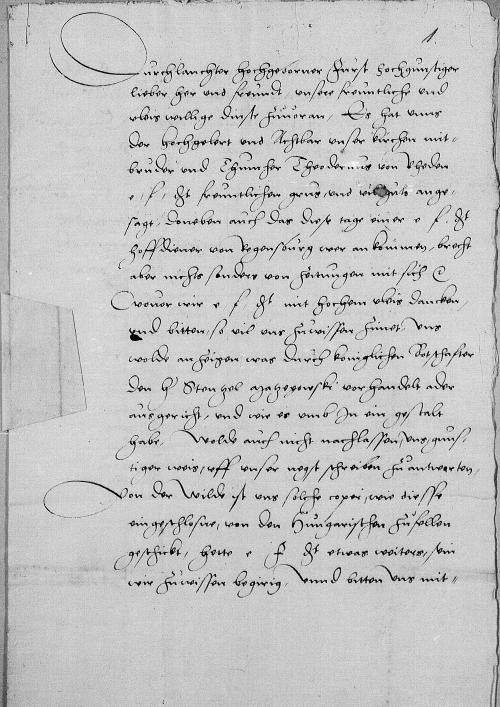 1.
Durchlauchter hochgeborner Furst hochgunstiger
lieber her und freundt unsere freuntliche und
vleis willige dinste zuvoran, Es hat unns
der hochgelert und Achtbar unser kirchen mit-
bruder und Thumher Theodericus von Rheden
e, f, dt freuntlichen grus, und vil guts ange-
sagt, doneben auch das diese tage einer e f. dt
hoffdiener von Regensburg wer ankommen, brecht
aber nichts sonders von zeitungen mit sich
wovor wir e, f, dt mit hochem vleis dancken,
und bitten, so vil uns zuwissen zimet, uns
wolde anzeigen was durch koniglichen Botschafter
den h Stenzel vorhandelt ader
ausgericht, und wie es umb In ein gestalt
habe, Wolde auch nicht nachlassen, uns guns-
tiger weis, uff unser negst schreiben zu antworten,
Von der Wilde ist uns solche copei, wie diesse
eingeschlosne, von den Hungarischen zufellen
geschickt, hette e f dt etwas weiters, sein
wir zuwissen begirig, Unnd bitten uns mit-